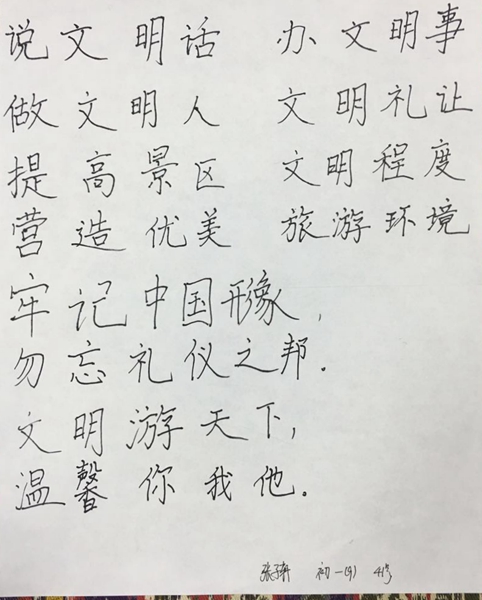 说文明话 办文明事
做文明人 文明礼让
提高景区 文明程度
营造优美 旅游环境
牢记中国形象,
勿忘礼仪之邦.
文明游天下,
温馨你我他.
初一(9) 4号